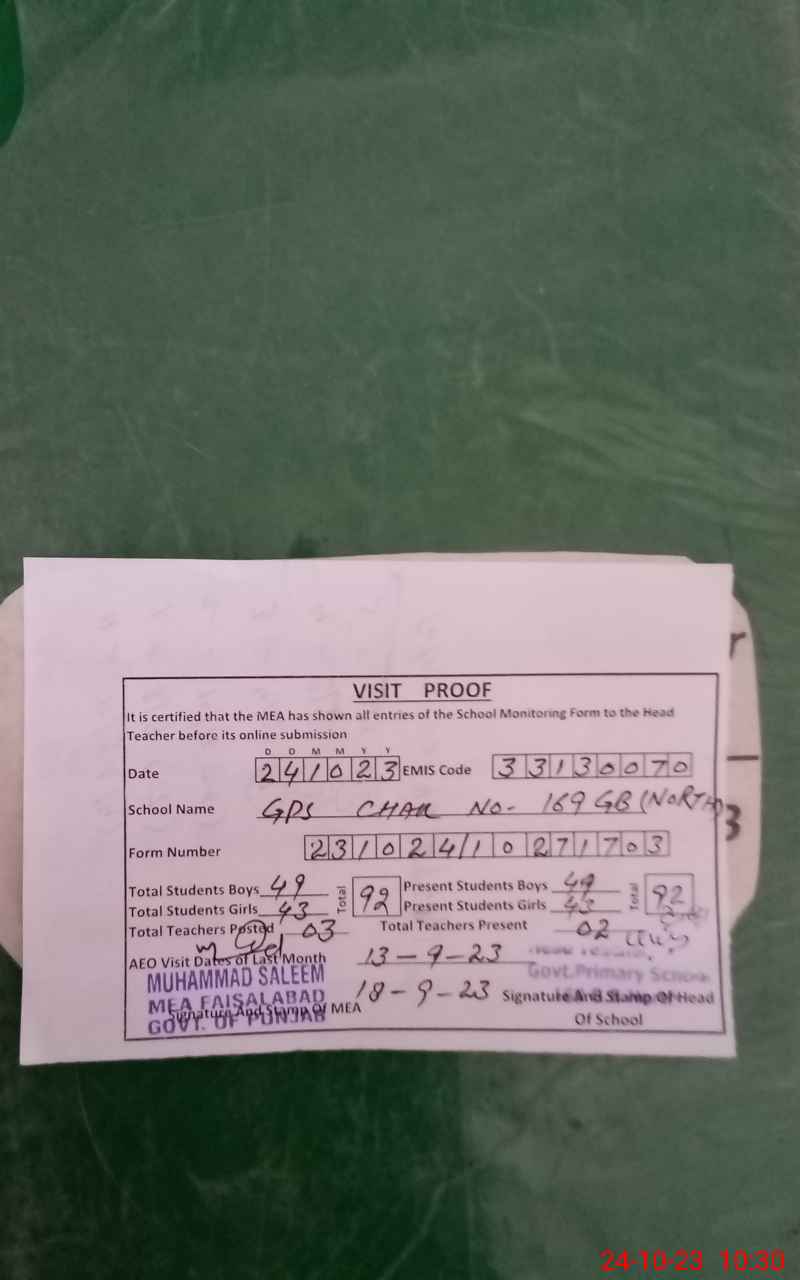 VISIT PROOF
It is certified that the MEA has shown all entries of the School Monitoring Form to the Head
Teacher before its online submission
D D M M Y Y
Date 241023 EMIS Code 33130070
School Name GPS CHAK NO- 169 GB (NORTH)
Form Number 231024/10271703
Total Students Boys 49 Total 92 Present Students Boys 49 Total 92
Total Students Girls 43 Present Students Girls 43
Total Teachers Posted 03 Total Teachers Present 02
AEO Visit Dates of Last Month 13-9-23
18-9-23
MUHAMMAD SALEEM
MEA FAISALABAD
GOVT. OF PUNJAB
Signature And Stamp Of MEA
Govt. Primary School
Signature And Stamp Of Head
Of School
r
3
24-10-23 10:30